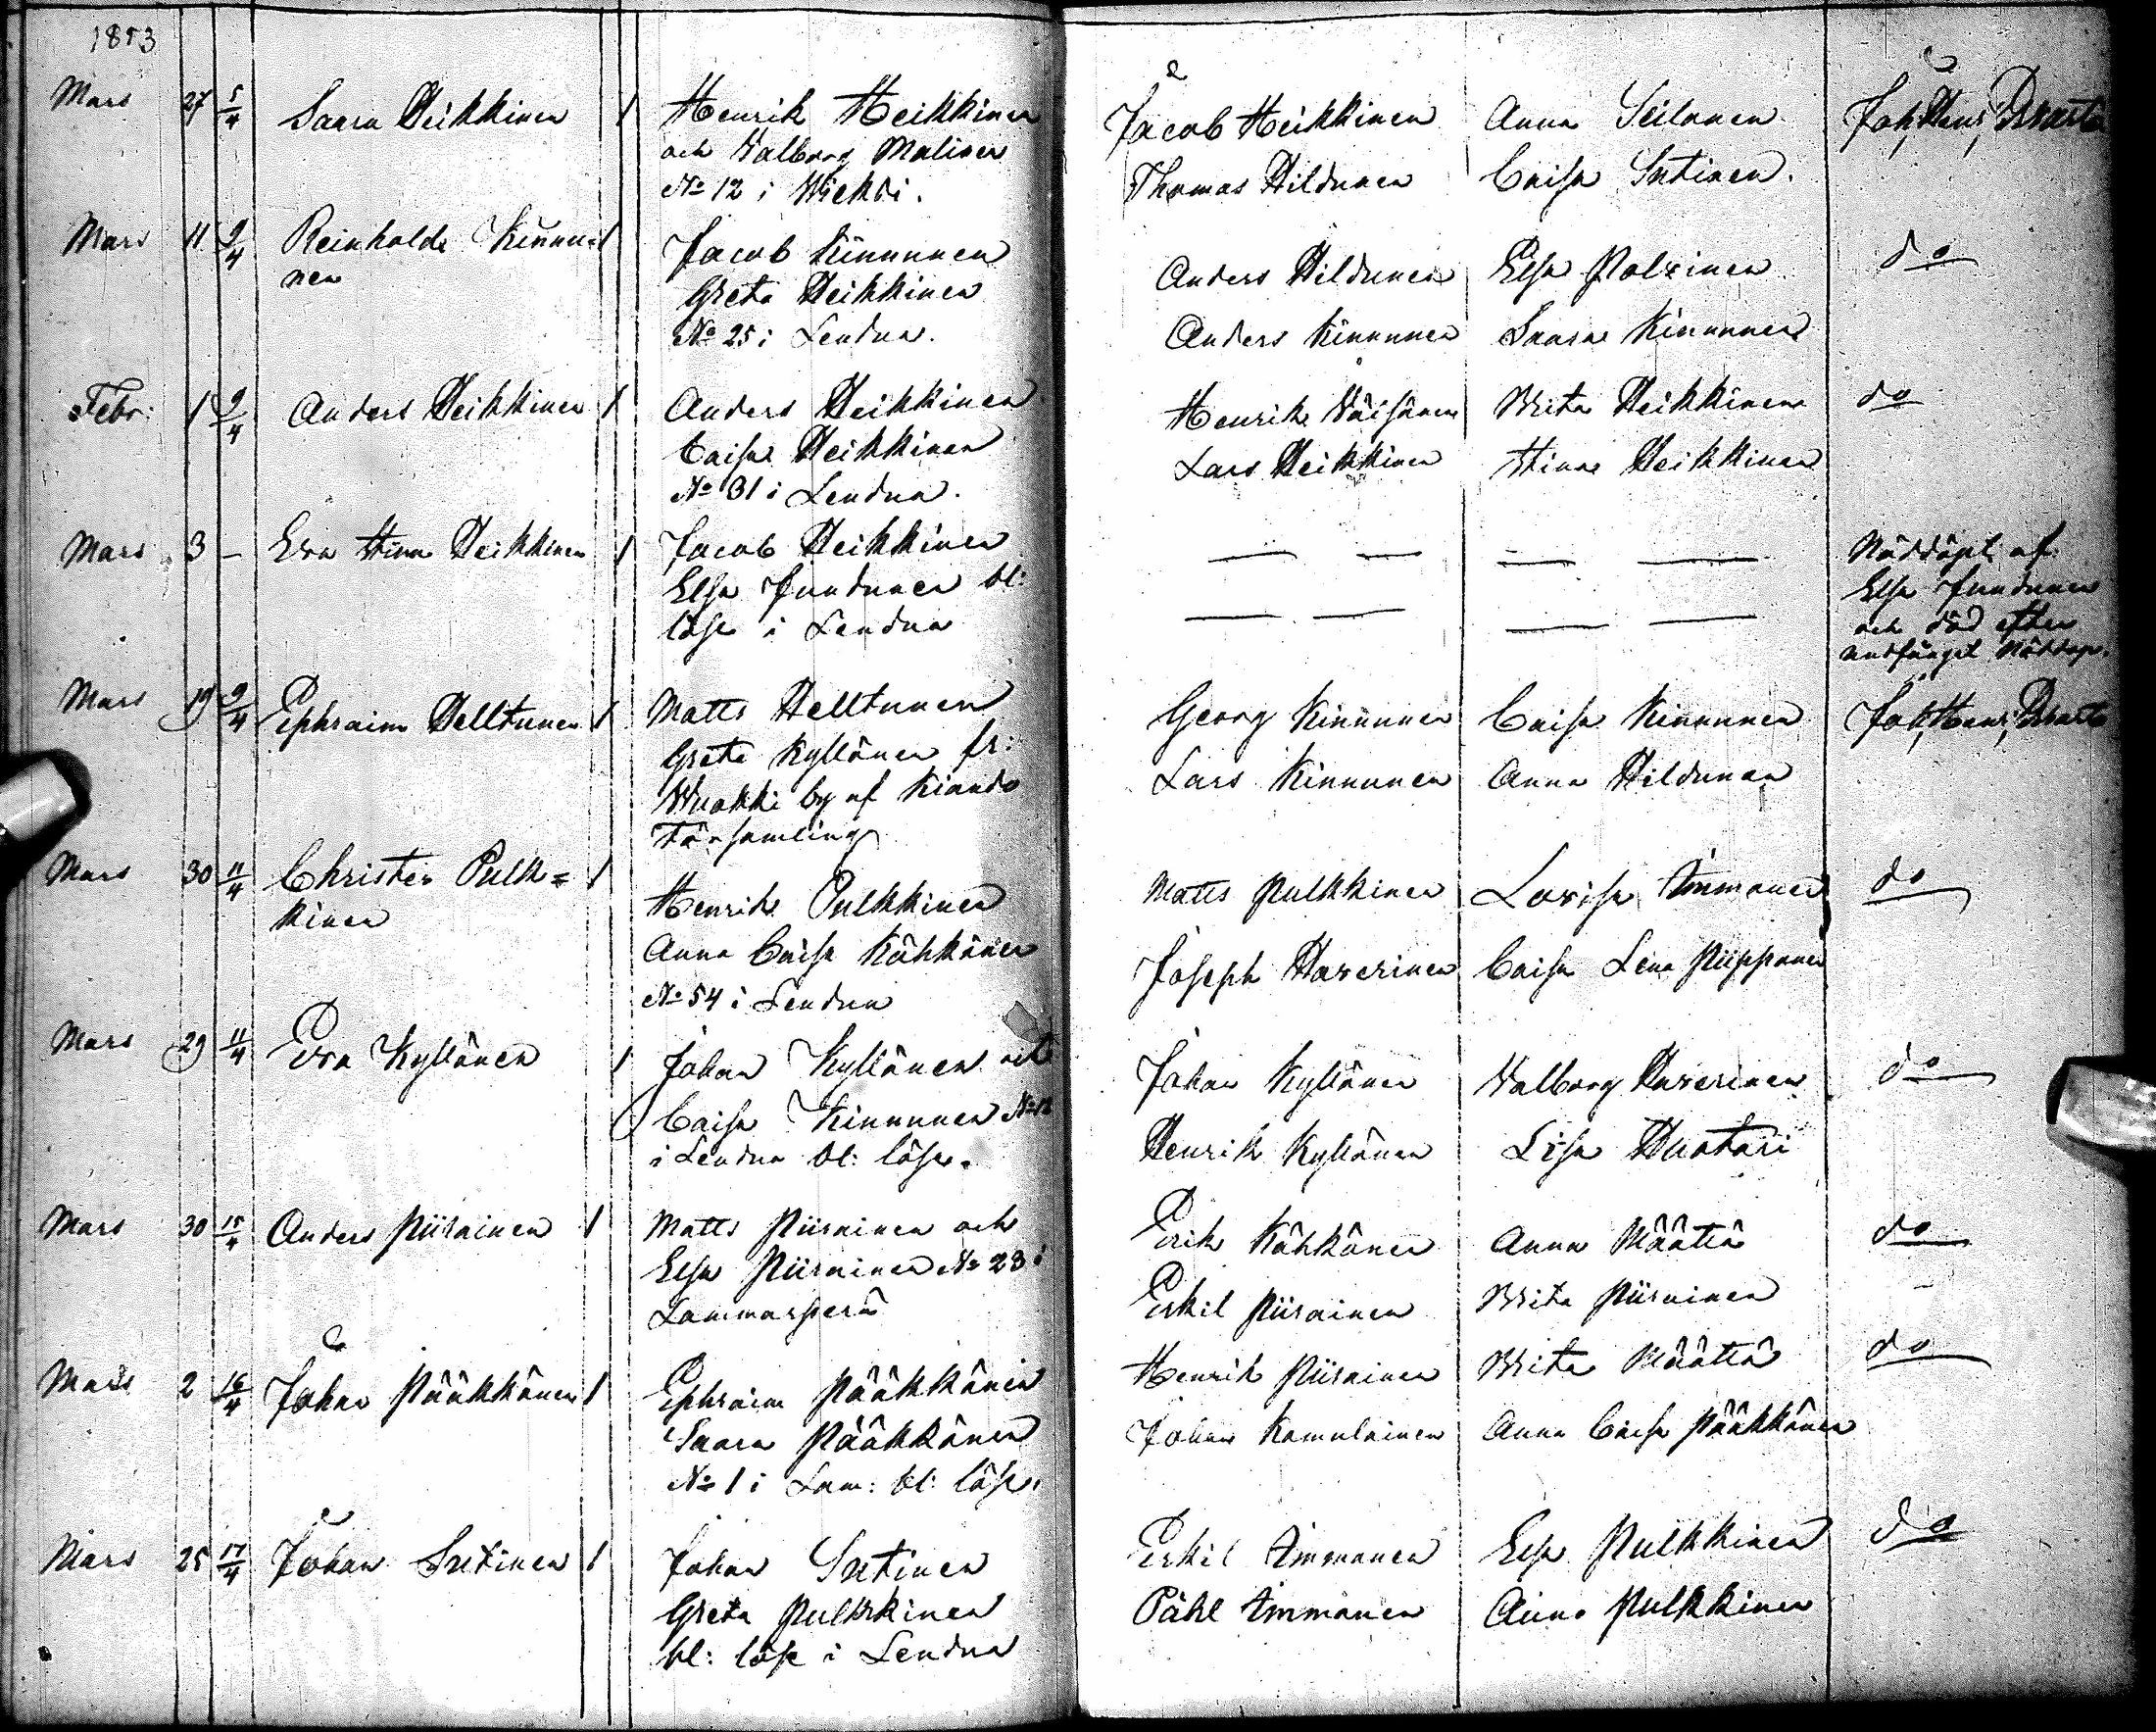 1853
Mars 27 5/4 Saara Heikkinen 1 Henrik Heikkinen Jacob Heikkinen Anna Seilonen Joh, Henr,
och Walborg Malinen
No 12 i Wieksi. Thomas Hildunen Caisa Sutinen.
Mars 11 9/4 Reinhold Kinnu= 1 Jacob Kinnunen Anders Hildunen Elsa Polvinen do
nen Greta Heikkinen
No 25 i Lendua. Anders Kinnunen Saara Kinnunen
Febr: 1 9/4 Anders Heikkinen 1 Anders Heikkinen Henrik Väisänen Brita Heikkinen do
Caisa Heikkinen Lars Heikkinen Stina Heikkinen
No 31 i Lendua.
Mars 3 – Eva Stina Heikkinen 1 Jacob Heikkinen — — — — Näddöpt af
Elsa Jundunen bl: Elsa Jundunen
löse i Lendua — — — — och död efter
undfånget Näddop.
Mars 19 9/4 Ephraim Helltunen 1 Matts Helltunen Georg Kinnunen Caisa Kinnunen Joh, Henr,
Greta Kyllönen fr: Lars Kinnunen Anna Hildunen
Wuokki by af Kiando
Församling
Mars 30 11/4 Christer Pulk= 1 Henrik Pulkkinen Matts Pulkkinen Lovisa Immonen do
kinen Anna Caisa Kähkönen Joseph Haverinen Caisa Lena Piipponen
No 54 i Lendua
Mars 29 11/4 Eva Kyllönen 1 Johan Kyllönen och Johan Kyllönen Walborg Haverinen do
Caisa Kinnunen No 12 Henrik Kyllönen Lisa Huotari
i Lendua bl: löse.
Mars 30 15/4 Anders Piirainen 1 Matts Piirainen och Erik Kähkönen Anna Määttä do
Elsa Piirainen No 23 i Eskil Piirainen Brita Piirainen
Lammasperä
Mars 2 16/4 Johan Pääkkönen 1 Ephraim Pääkkönen Henrik Piirainen Brita Määttä do
Saara Pääkkönen Johan Komulainen Anna Caisa Pääkkönen
No 1 i Lam: bl: löse.
Mars 25 17/4 Johan Sutinen 1 Johan Sutinen Eskil Immonen Elsa Pulkkinen do
Greta Pulkkinen Påhl Immonen Anna Pulkkinen
bl: löse i Lendua